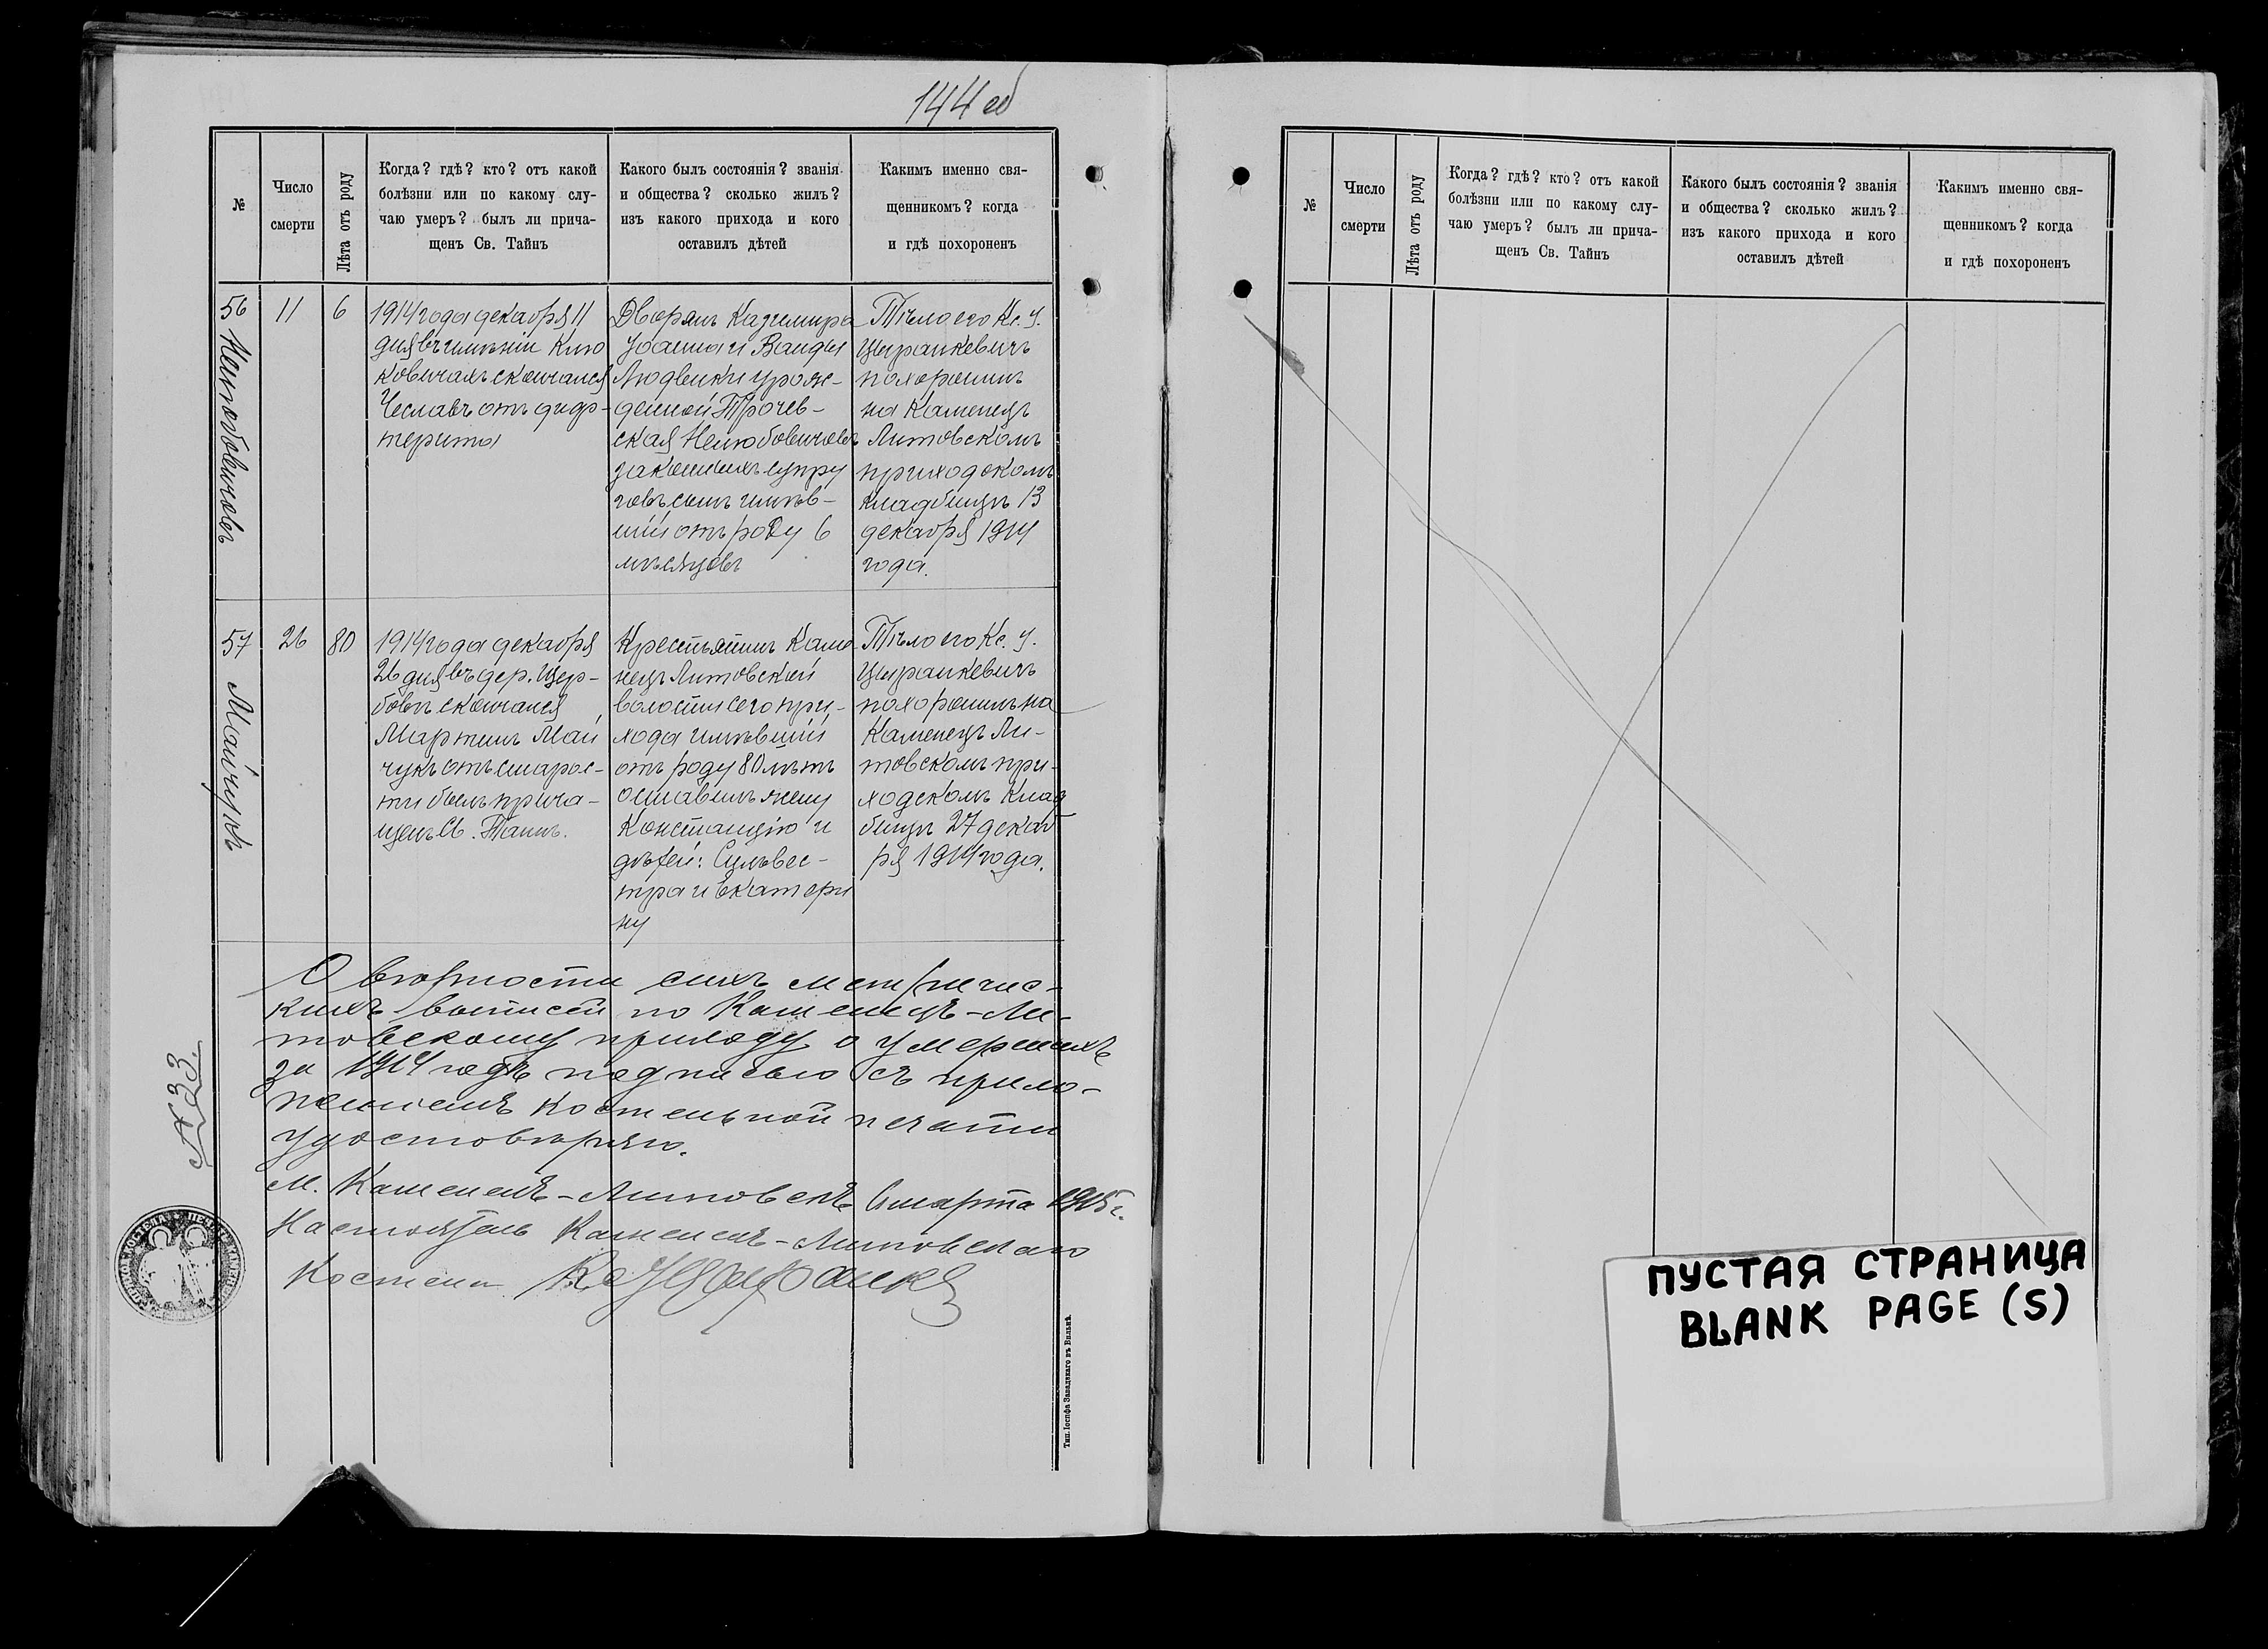 144 об
№
Число
смерти
Лѣта отъ роду
Когда? гдѣ? кто? отъ какой
болѣзни или по какому слу-
чаю умеръ? былъ ли прича-
щенъ Св. Тайнъ
Какого былъ состоянія? званія
и общества? сколько жилъ?
изъ какого прихода и кого
оставилъ дѣтей
Какимъ именно свя-
щенникомъ? когда
и гдѣ похороненъ
56
11
6
1914 года декабря 11
дня въ имѣніи
скончался
Чеславъ отъ диф-
терита
Дворянъ Казимира
Іоанна и Ванды
Людвики урож-
денной Трочев-
ская
законныхъ супру
говъ сынъ имѣв-
шій отъ роду 6
мѣсяцовъ
Тѣло его Кс. У.
Цыранкевичъ
похоронилъ
на Каменецъ
Литовскомъ
приходскомъ
кладбищѣ 13
декабря 1914
года.
57
Майчукъ
26
80
1914 года декабря
26 дня въ дер. Щер-
бовѣ скончался
Мартинъ Май
чукъ отъ старос-
ти былъ прича-
щенъ Св. Таинъ.
Крестьянинъ Каме
нецъ Литовской
волости сего при-
хода имѣвшій
отъ роду 80 лѣтъ
оставилъ жену
Констанцію и
дѣтей: Сильвес-
тра и Екатери
ну
Тѣло его Кс. У.
Цыранкевичъ
похоронилъ на
Каменецъ Ли-
товскомъ при-
ходскомъ клад
бищѣ 27 декаб
ря 1914 года.
О вѣрности сихъ метричес-
кихъ выписей по Каменецъ-Ли-
товскому приходу о умершихъ
за 1914 годъ подписью съ прило-
женіемъ костельной печати
удостовѣряю.
М. Каменецъ-Литовскъ марта 1915 г.
Настоятель Каменецъ-Литовскаго
Костела
Тип. Іосифа Завадзкаго въ Вильнѣ.
№
Число
смерти
Лѣта отъ роду
Когда? гдѣ? кто? отъ какой
болѣзни или по какому слу-
чаю умеръ? былъ ли прича-
щенъ Св. Тайнъ
Какого былъ состоянія? званія
и общества? сколько жилъ?
изъ какого прихода и кого
оставилъ дѣтей
Какимъ именно свя-
щенникомъ? когда
и гдѣ похороненъ
ПУСТАЯ СТРАНИЦА
BLANK PAGE (S)